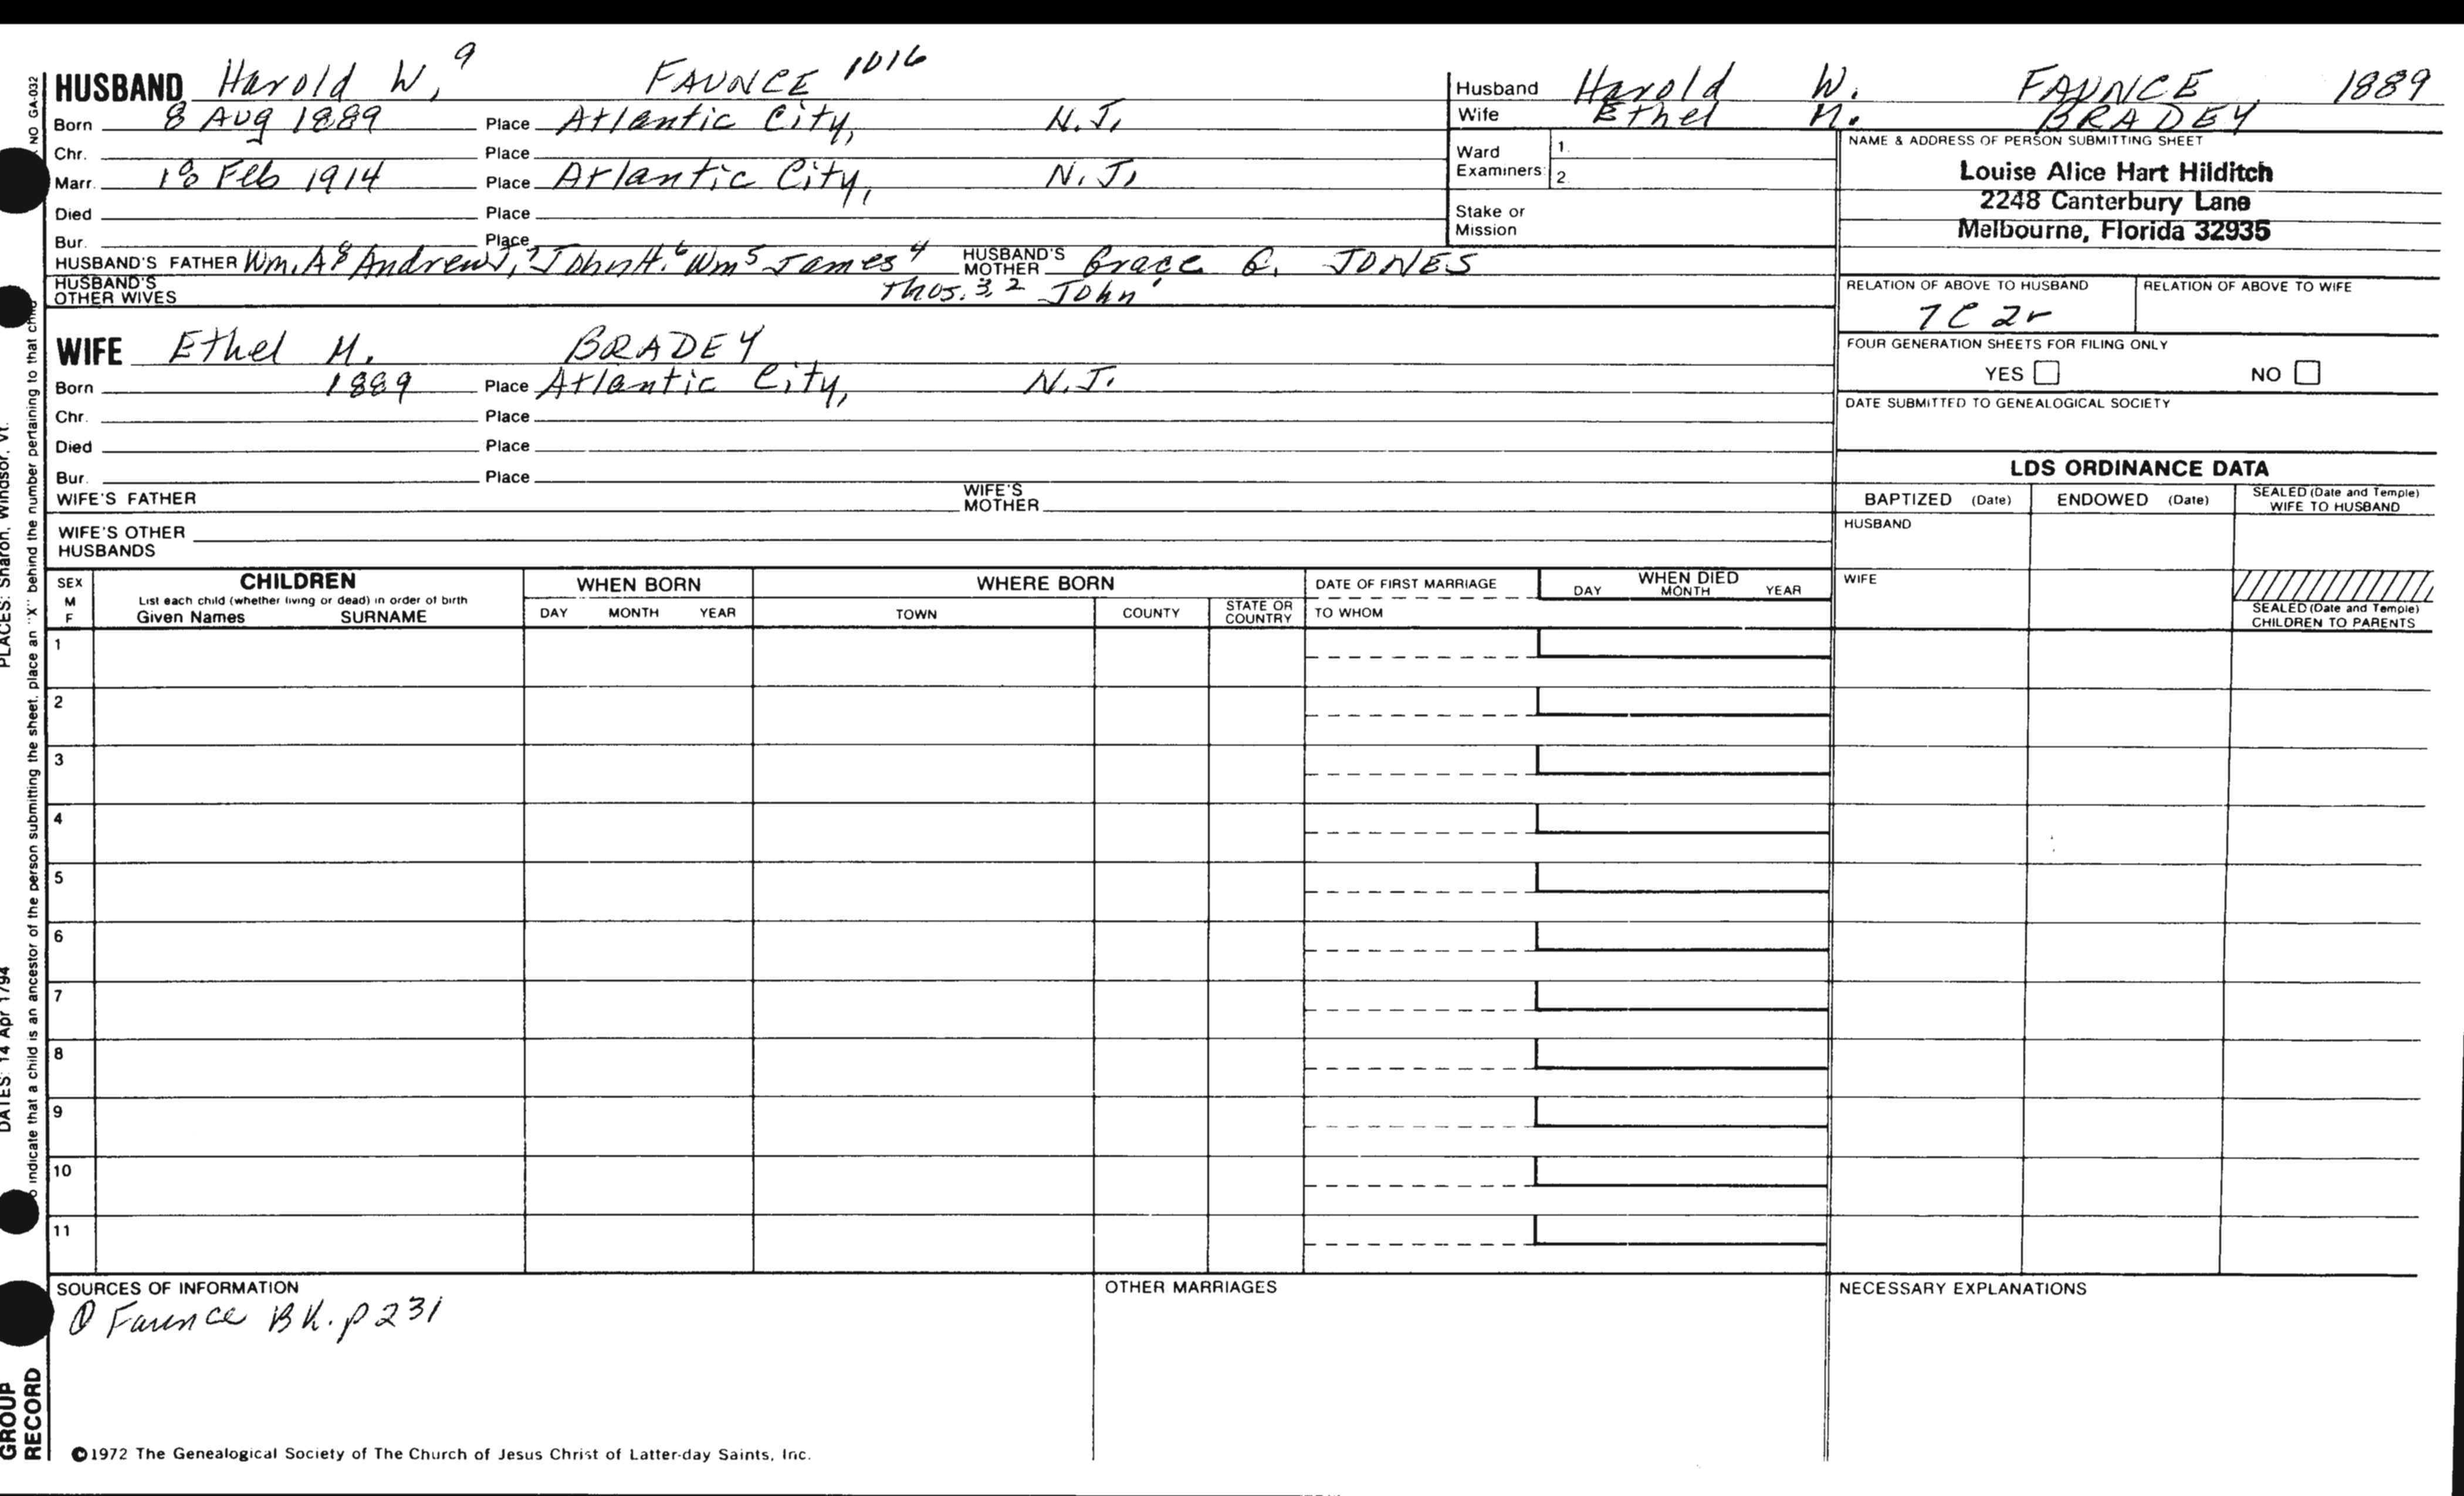 HUSBAND Harold W.⁹ FAUNCE 1016
Born 8 Aug 1889 Place Atlantic City, N.J.
Chr. Place
Marr. 18 Feb 1914 Place Atlantic City, N.J.
Died Place
Bur. Place
HUSBAND'S FATHER Wm. A⁸ Andrew J,⁷ John H.⁶ Wm⁵ James⁴ HUSBAND'S MOTHER Grace JONES
HUSBAND'S OTHER WIVES Thos.³,² John¹
WIFE Ethel M. BRADEY
Born 1889 Place Atlantic City, N.J.
Chr. Place
Died Place
Bur. Place
WIFE'S FATHER WIFE'S MOTHER
WIFE'S OTHER HUSBANDS
Husband Harold W. FAUNCE 1889
Wife Ethel M. BRADEY
Ward Examiners: 1.
2.
Stake or Mission
NAME & ADDRESS OF PERSON SUBMITTING SHEET
Louise Alice Hart Hilditch
2248 Canterbury Lane
Melbourne, Florida 32935
RELATION OF ABOVE TO HUSBAND RELATION OF ABOVE TO WIFE
7C 2r
FOUR GENERATION SHEETS FOR FILING ONLY
YES NO
DATE SUBMITTED TO GENEALOGICAL SOCIETY
LDS ORDINANCE DATA
BAPTIZED (Date) ENDOWED (Date) SEALED (Date and Temple) WIFE TO HUSBAND
HUSBAND
WIFE
SEALED (Date and Temple) CHILDREN TO PARENTS
SEX M F
CHILDREN
List each child (whether living or dead) in order of birth
Given Names SURNAME
WHEN BORN
DAY MONTH YEAR
WHERE BORN
TOWN COUNTY STATE OR COUNTRY
DATE OF FIRST MARRIAGE
TO WHOM
WHEN DIED
DAY MONTH YEAR
1
2
3
4
5
6
7
8
9
10
11
SOURCES OF INFORMATION
Faunce BK. p 231
OTHER MARRIAGES
NECESSARY EXPLANATIONS
©1972 The Genealogical Society of The Church of Jesus Christ of Latter-day Saints, Inc.
NO GA-032
PLACES: Sharon, Windsor, Vt.
DATES: 14 Apr 1794
o indicate that a child is an ancestor of the person submitting the sheet, place an "X" behind the number pertaining to that child
GROUP
RECORD